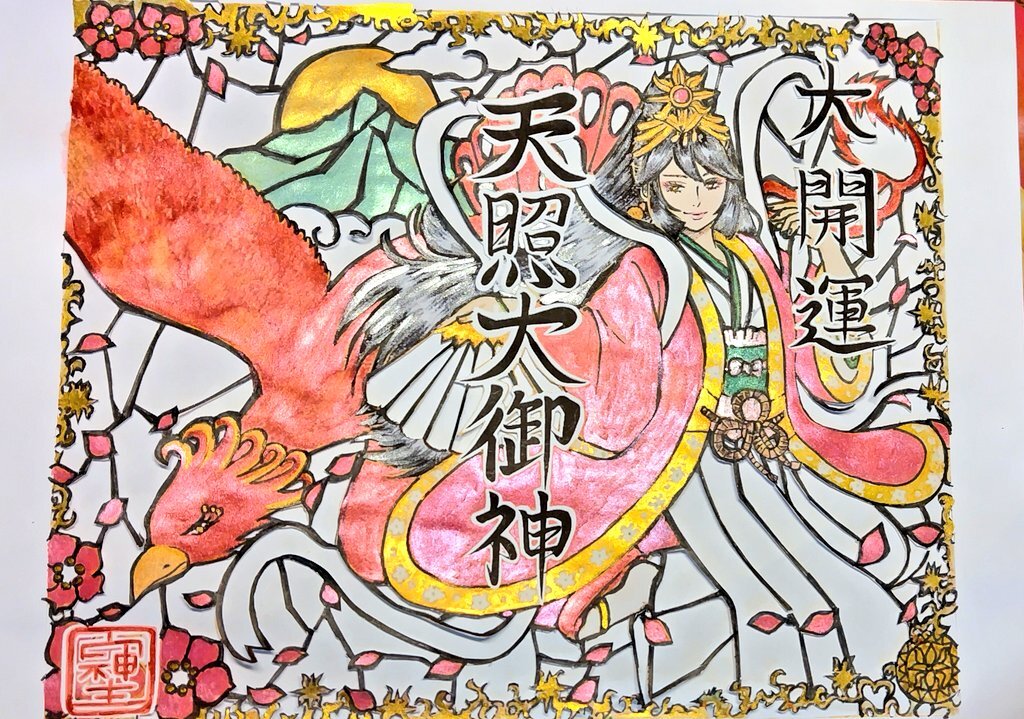 大開運
天照大御神